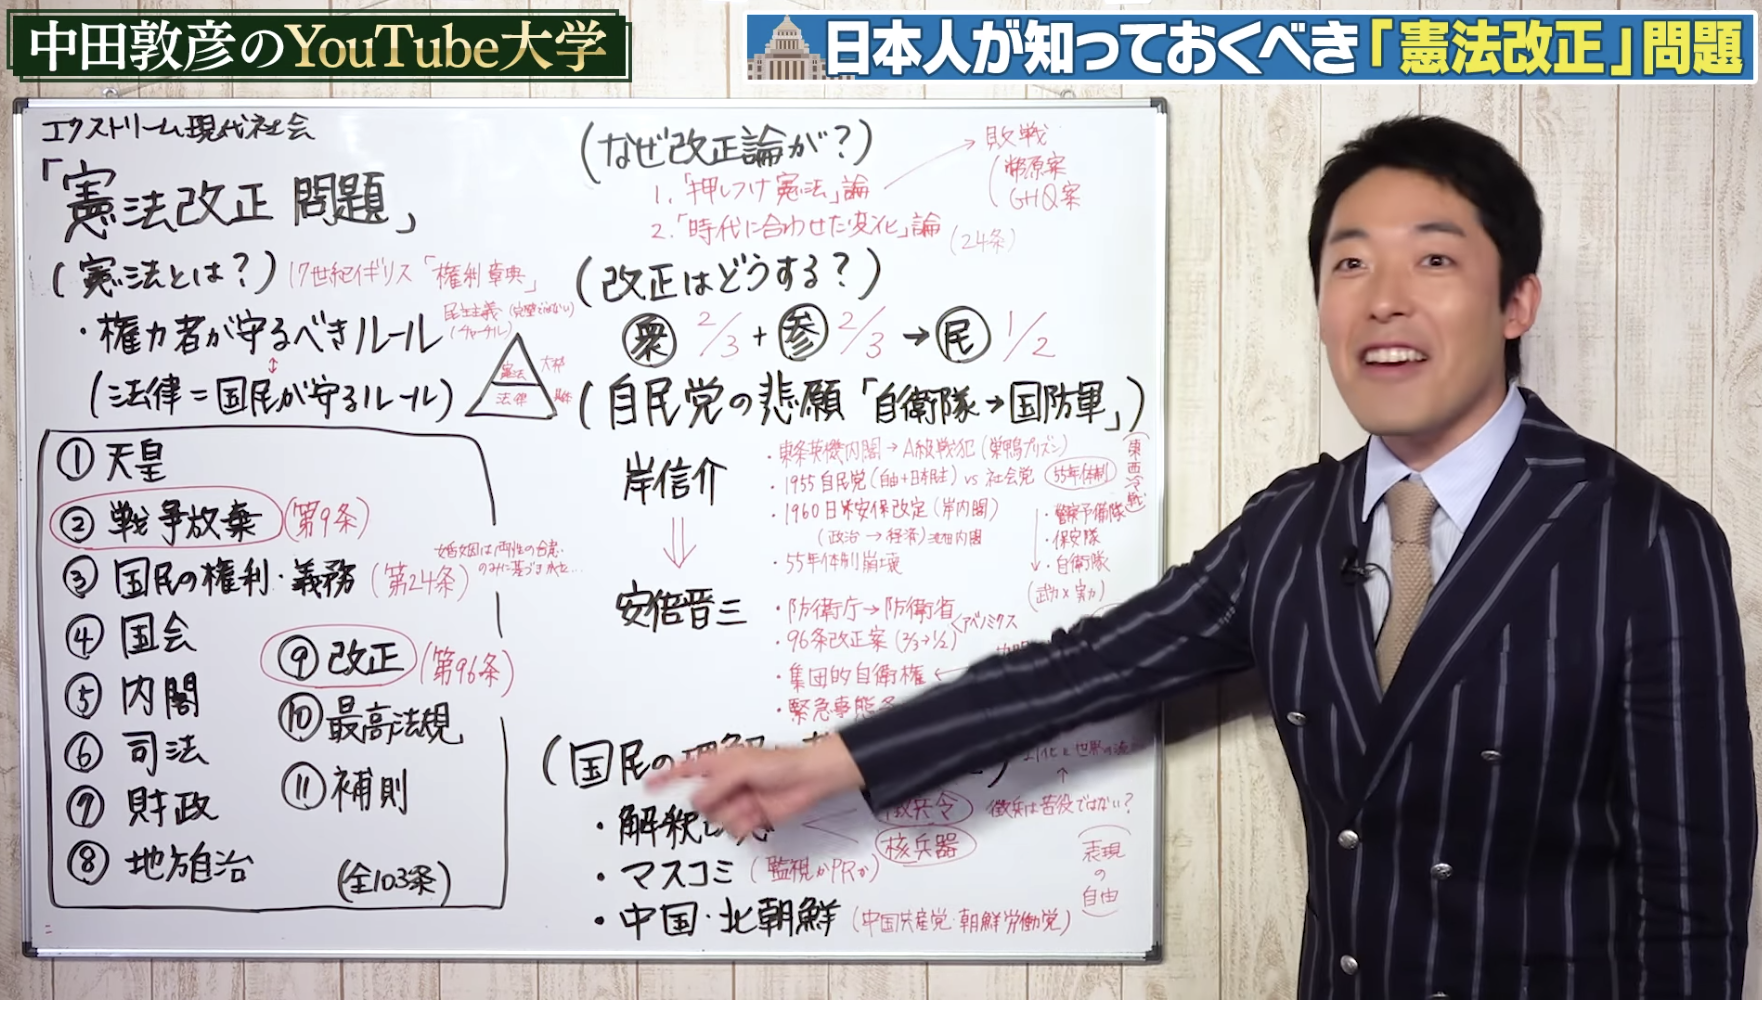 中田敦彦のYouTube大学
日本人が知っておくべき「憲法改正」問題
エクストリーム現代社会
「憲法改正 問題」
(憲法とは?) 17世紀イギリス「権利章典」
・権力者が守るべきルール
民主主義(完璧ではない)
(チャーチル)
↕
(法律=国民が守るルール)
憲法 大枠
法律 具体
① 天皇
② 戦争放棄 (第9条)
③ 国民の権利・義務 (第24条)
婚姻は両性の合意
のみに基づき成立…
④ 国会
⑤ 内閣
⑥ 司法
⑦ 財政
⑧ 地方自治
⑨ 改正 (第96条)
⑩ 最高法規
⑪ 補則
(全103条)
(なぜ改正論が?)
1.「押しつけ憲法」論 → 敗戦
(幣原案
GHQ案
2.「時代に合わせた変化」論 (24条)
(改正はどうする?)
衆 2/3 + 参 2/3 → 民 1/2
(自民党の悲願「自衛隊→国防軍」)
岸信介
・東条英機内閣→A級戦犯(巣鴨プリズン)
・1955自民党(自由+日本民主) vs 社会党 55年体制
(東西冷戦)
・1960日米安保改定(岸内閣)
(政治→経済)池田内閣
・55年体制崩壊
・警察予備隊
・保安隊
・自衛隊
(武力×実力)
安倍晋三
・防衛庁→防衛省
・96条改正案(2/3→1/2) <アベノミクス
・集団的自衛権←
・緊急事態条
(国民の理解
・解釈
徴兵令 徴兵は苦役ではない?
核兵器
・マスコミ(監視かPRか)
(表現の自由)
・中国・北朝鮮(中国共産党・朝鮮労働党)